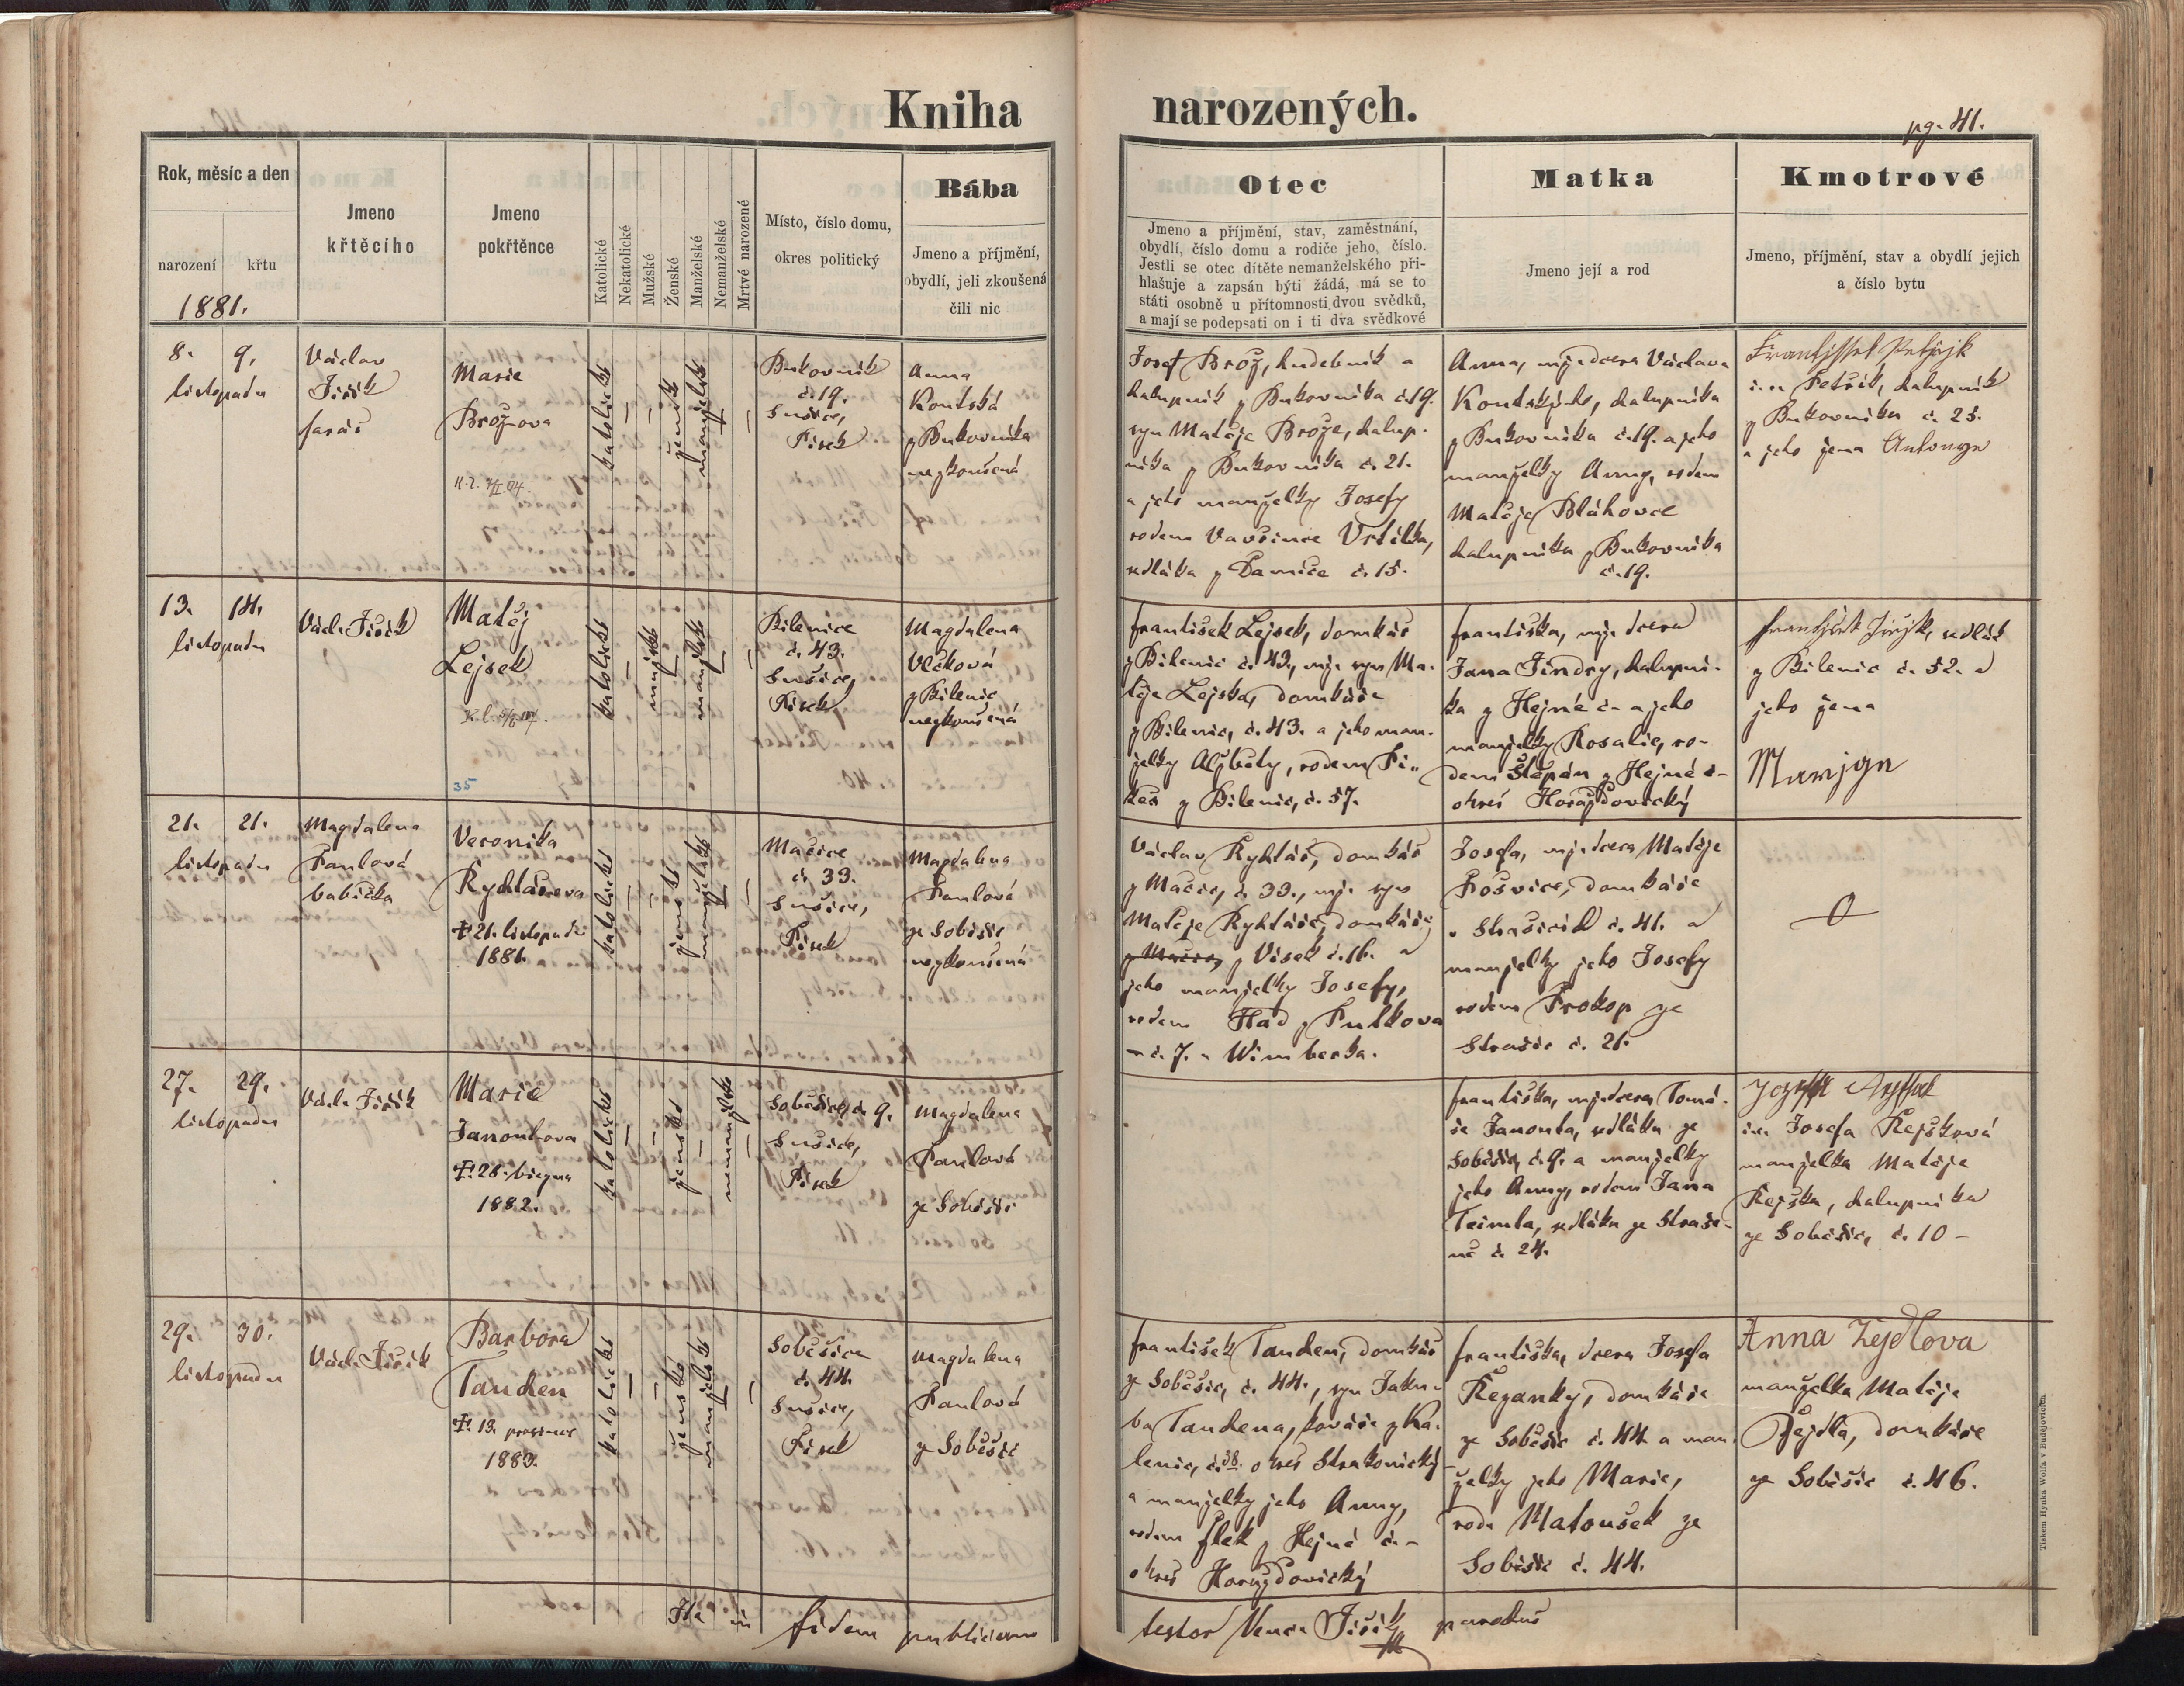 Kniha narozených.
pg. 41.
Rok, měsíc a den
narození
křtu
1881.
Jmeno
křtěcího
Jmeno
pokřtěnce
Katolické
Nekatolické
Mužské
Ženské
Manželské
Nemanželské
Mrtvé narozené
Místo, číslo domu,
okres politický
Bába
Jmeno a příjmění,
obydlí, jeli zkoušená
čili nic
Otec
Jmeno a příjmění, stav, zaměstnání,
obydlí, číslo domu a rodiče jeho, číslo.
Jestli se otec dítěte nemanželského při-
hlašuje a zapsán býti žádá, má se to
státi osobně u přítomnosti dvou svědků,
a mají se podepsati on i ti dva svědkové
Matka
Jmeno její a rod
Kmotrové
Jmeno, příjmění, stav a obydlí jejich
a číslo bytu
8. 9.
listopadu
Václav
Jiřík
farář
Marie
Brožova
katolické
ženské
manželské
Bukovník
č. 19.
Sušice,
Písek
Anna
Koutská
z Bukovníka
nezkoušená
Josef Brož, hudebník a
chalupník z Bukovníka č. 19.
syn Matěje Brože, chalup-
níka z Bukovníka č. 21.
a jeho manželky Josefy
rodem Vavřince Vrtilka,
sedláka z Damíče č. 15.
Anna, mž. dcera Václava
Koutského, chalupníka
z Bukovníka č. 19. a jeho
manželky Anny, rodem
Matěje Bláhovce
chalupníka z Bukovníka
č. 19.
Frantissek Petrzjk
i. e. Petřík, chalupník
z Bukovníka č. 23.
a jeho žena Antonye
13. 14.
listopadu
Václ. Jiřík
Matěj
Lejsek
35
katolické
mužské
manželské
Bílenice
č. 43.
Sušice,
Písek
Magdalena
Vlčková
z Bílenic
nezkoušená
František Lejsek, domkář
z Bílenic č. 43, mž. syn Ma-
těje Lejska, domkáře
z Bílenic, č. 43. a jeho man-
želky Alžběty, rodem
z Bílenic, č. 57.
Františka, mž. dcera
Jana Jindry, chalupní-
ka z Hejné č – a jeho
manželky Rosalie, ro-
dem Štěpán z Hejné č –
okres Horažďovický
Frantissek Jiřjk, sedlák
z Bílenic č. 52. a
jeho žena
Marzjge
21. 21.
listopadu
Magdalena
Pavlová
babička
Veronika
Rychtářova
† 21. listopadu
1881.
katolické
ženské
manželské
Mačice
č. 33.
Sušice,
Písek
Magdalena
Pavlová
ze Soběšic
nezkoušená
Václav Rychtář, domkář
z Mačic, č. 33., mž. syn
Matěje Rychtáře, domkáře
z Mačic, z Vísek č. 16. a
jeho manželky Josefy,
rodem Had z Putkova
č. 7. u Wimberka.
Josefa, mž. dcera Matěje
Prošvice, domkáře
v Strašicích č. 41. a
manželky jeho Josefy
rodem Prokop ze
Strašic č. 21.
0
27. 29.
listopadu
Václ. Jiřík
Marie
Janoutova
† 28. března
1882.
katolické
ženské
nemanželské
Soběšice, č. 9.
Sušice,
Písek
Magdalena
Pavlová
ze Soběšic
Františka, mž. dcera Tomá-
še Janouta, sedláka ze
Soběšic, č. 9. a manželky
jeho Anny, rodem Jana
Teimla, sedláka ze Straši-
ně č. 24.
i. e. Josefa Rejsková
manželka Matěje
Rejska, chalupníka
ze Soběšic, č. 10 –
29. 30.
listopadu
Václ. Jiřík
Barbora
Tauchen
† 13. prosince
1883.
katolické
ženské
manželské
Soběšice
č. 44.
Sušice,
Písek
Magdalena
Pavlová
ze Soběšic
František Tauchen, domkář
ze Soběšic, č. 44., syn Jaku-
ba Tauchena, kováře z Ka-
lenic, č. 38. okres Strakonický
a manželky jeho Anny,
rodem Flek z Hejné č. –
okres Horažďovický
Františka, dcera Josefa
Řezanky, domkáře
ze Soběšic č. 44. a man-
želky jeho Marie,
rodu Matoušek ze
Soběšic č. 44.
Anna Zejdlova
manželka Matěje
Zejdla, domkáře
ze Soběšic č. 46.
Ita in fidem publicam
testor Venc. Jiřík parochus
Tiskem Hynka Wolfa v Budějovicích